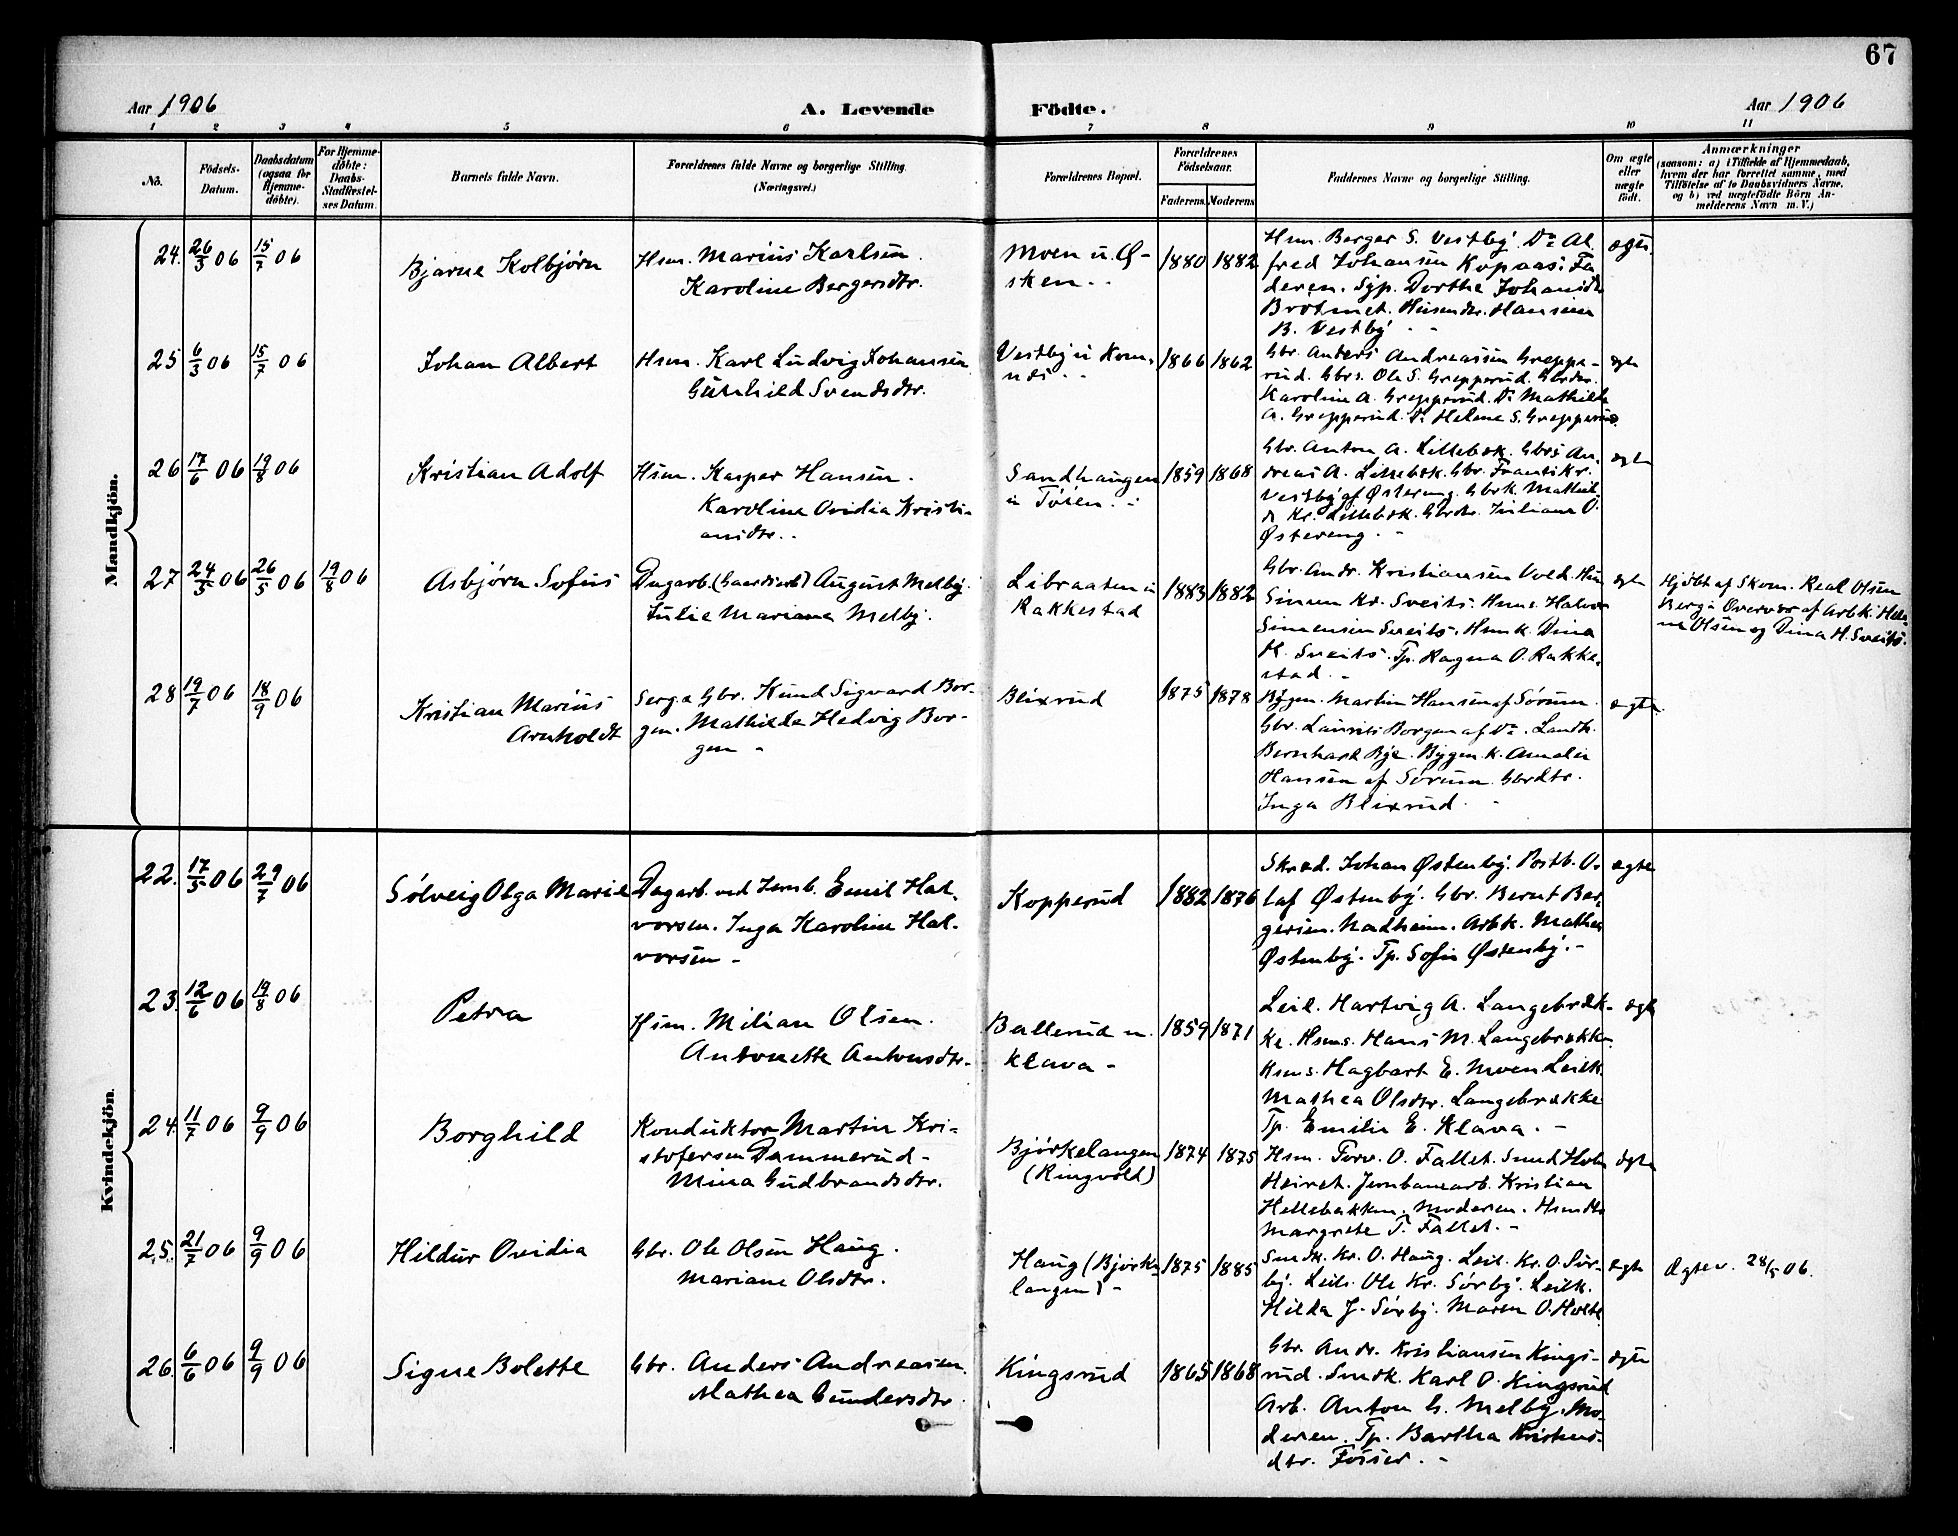 67
Aar 1906
A. Levende
Födte.
Aar 1906
1 2 3 4 5 6 7 8 9 10 11
No.
Födsels-
Datum.
Daabsdatum
(ogsaa for
Hjemme-
döbte).
For Hjemme-
döbte:
Daabs-
Stadfæstel-
ses Datum.
Barnets fulde Navn.
Forældrenes fulde Navne og borgerlige Stilling.
(Næringsvei.)
Forældrenes Bopæl.
Forældrenes
Födselsaar.
Faderens. Moderens.
Faddernes Navne og borgerlige Stilling.
Om ægte
eller
uægte
födt.
Anmærkninger
(saasom: a) i Tilfælde af Hjemmedaab,
hvem der har forrettet samme, med
Tilföielse af to Daabsvidners Navne,
og b) ved uægtefödte Börn An-
melderens Navn m. V.)
Mandkjön.
24. 26/3 06 15/7 06
Bjarne Kolbjørn
Hsm. Marius Karlsen.
Karoline Bergersdtr.
Moen u. Ø-
sken..
1880 1882
Hsm. Berger S. Vestby. Do Al
fred Johansen Kopaas. Fa
deren. Sgp. Dorthe Johansdtr
Brøtmet. Husmdtr. Hansine
B. Vestby
ægte.
25 6/3 06 15/7 06
Johan Albert
Hsm. Karl Ludvig Johansen
Gunhild Svendsdtr.
Vestby u Kom-
nes..
1866 1862
Gbr. Anders Andreassen Greppe-
rud. Gbrs. Ole S. Grepperud. Gbrdtr.
Karoline A. Grepperud. Do Mathilde
A. Grepperud. Do Helene S. Grepperud
ægte
26 17/6 06 19/8 06
Kristian Adolf
Hsm. Kasper Hansen.
Karoline Ovidia Kristi-
ansdtr..
Sandhaugen
u Tøien.
1859 1868
Gbr. Anton A. Lillebæk. Gbrs An-
dreas A. Lillebæk. Gbr. Frants Kr.
Vestby af Østereng. Gbrk. Mathil-
de Kr. Lillebæk. Gbrdtr. Juliane O.
Østereng.
ægte
27 24/5 06 26/5 06 19/8 06
Asbjørn Sofus
Dagarb. (Gaardsarb) August Melby.
Julie Mariane Melby.
Libraaten u
Rakkestad
1883 1882
Gbr. Andr. Kristiansen Vold. Hsm
Simen Kr. Sveits. Hsms. Halvor
Simensen Sveits. Hsmk. Dina
H. Sveits. Tp. Ragna O. Rakke-
stad.
ægte
Hjdbt af Skom. Real Olsen
Berg. Overvær af Arbk. Hele-
ne Olsen og Dina H. Sveits.
28 19/7 06 18/9 06
Kristian Marius
Arnholdt
Serg. & Gbr. Knud Sigvard Bor-
gen. Mathilde Hedvig Bor-
gen
Blixrud
1875 1878
Bygm. Martin Hansen af Sørum.
Gbr. Laurits Borgen af Do. Landh.
Bernhard Bye. Bygm. k. Amalie
Hansen af Sørum. Gbrdtr.
Inga Blixrud.
ægte
Kvindekjön.
22. 17/5 06 29/7 06
Sølveig Olga Marie
Dagarb. ved Jernb. Emil Hal-
vorsen. Inga Karoline Hal-
vorsen
Kopperud
1882 1876
Skræd. Johan Østenby. Postb. O-
laf Østenby. Gbr. Bernt Ber-
gersen. Nadheim. Arbk. Mathea
Østenby. Tp. Sofie Østenby.
ægte
23. 12/6 06 19/8 06
Petra
Hsm. Milian Olsen.
Antonette Antonsdtr.
Ballerud u.
Klava
1859 1871
Leil. Hartvig A. Langebræk-
ke. Hsms. Hans M. Langebrække
Hsms. Hagbart E. Moen Leilk.
Mathea Olsdtr. Langebrække
Tp. Emilie E. Klava.
ægte
24. 11/7 06 9/9 06
Borghild
Konduktør Martin Kri-
stofersen Dammerud-
Mina Gudbrandsdtr.
Bjørkelangen
(Ringvold)
1874 1875
Hsm. Torv. O. Fallet. Smed Hole
Heiret. Jernbanearb. Kristian
Hellebakken. Moderen. Hsmdtr
Margrete T. Fallet.
ægte
25. 21/7 06 9/9 06
Hildur Ovidia
Gbr. Ole Olsen Haug.
Mariane Olsdtr.
Haug (Bjørke-
langen)
1875 1885
Smdk. Kr. O. Haug. Leil. Kr. O. Sør-
by. Leils. Ole Kr. Sørby. Leilk.
Hilda J. Sørby. Maren O. Holte
ægte
Ægtev. 28/5 06.
26. 6/6 06 9/9 06
Signe Bolette
Gbr. Anders Andreasen
Mathea Gundersdtr.
Kingsrud
1865 1868
Gbr. Andr. Kristiansen Kings-
rud. Smdk. Karl O. Kingsrud
Arb. Anton G. Melby. Mo-
deren. Tp. Barthe Kristens-
dtr. Fosser.
ægte